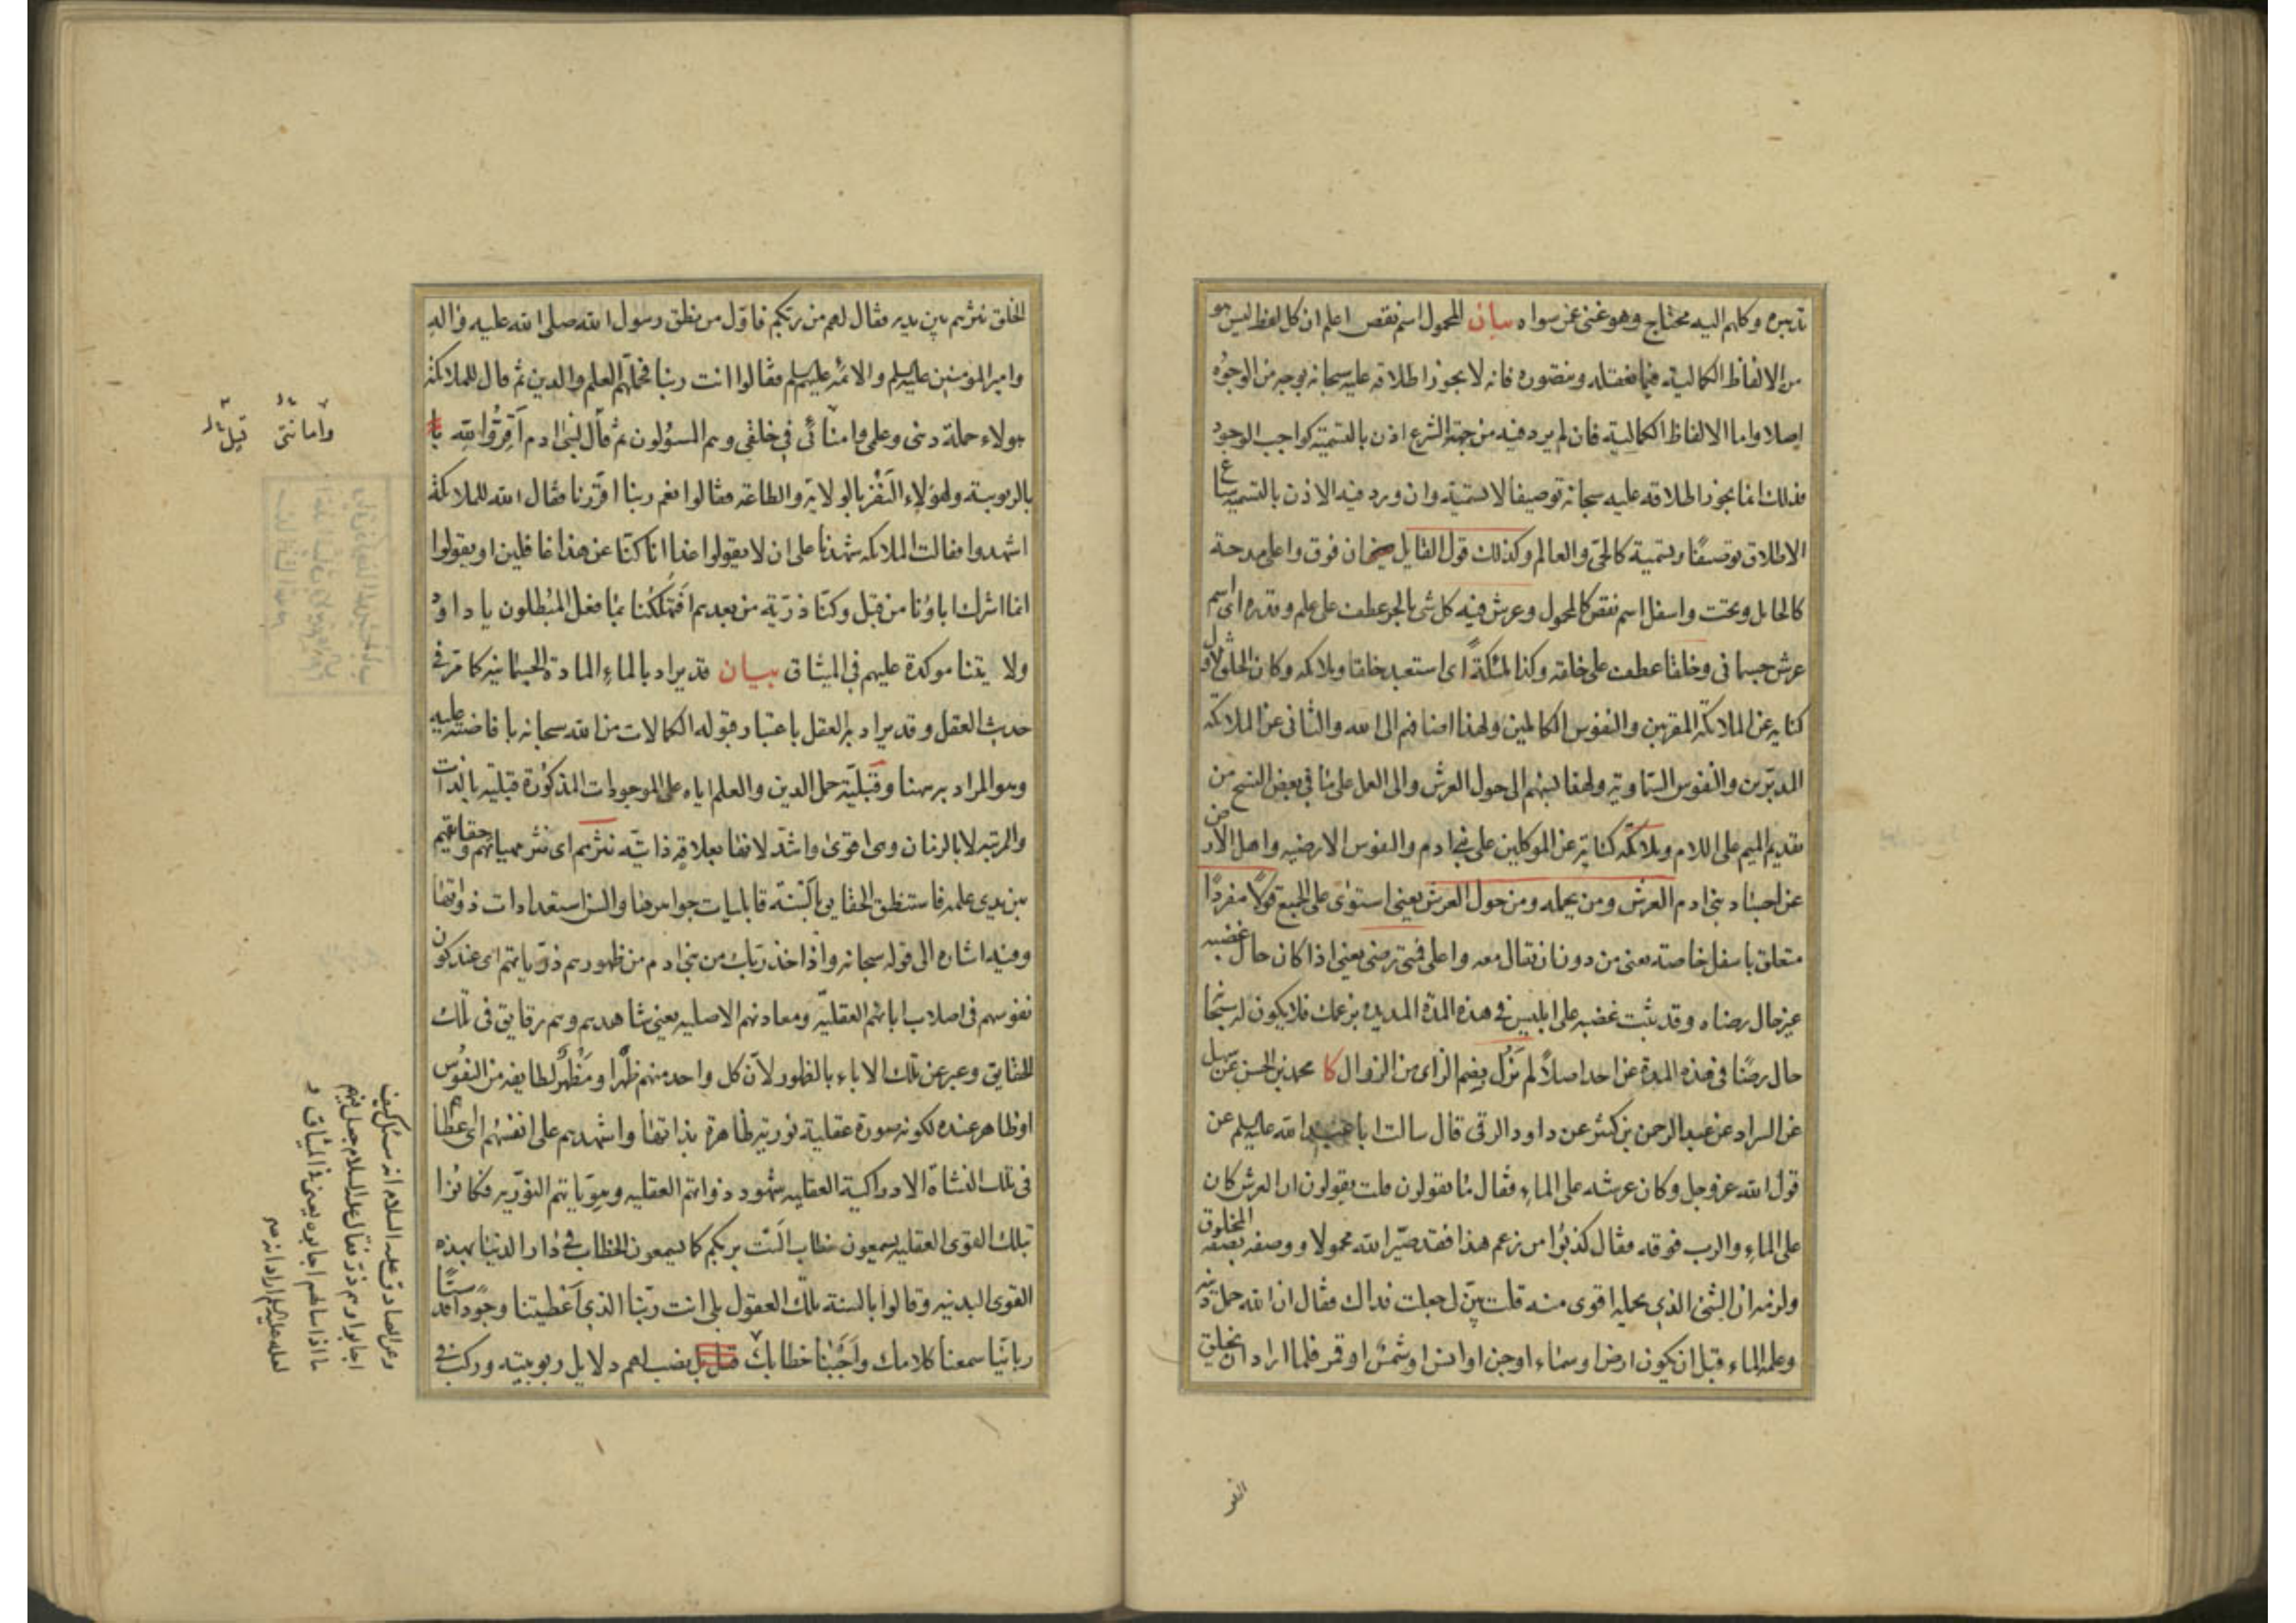 تدبيره وكلهم اليه محتاج وهو غنى عن سواه بيان المحمول اسم نقص اعلم ان كل لفظ ليس هو
من الالفاظ الكمالية فيما نعقله ونتصوره فانه لا يجوز اطلاقه عليه سبحانه بوجه من الوجوه
اصلا واما الالفاظ الكمالية فان لم يرد فيه من جهة الشرع اذن بالتسمية كواجب الوجود
فذلك انما يجوز اطلاقه عليه سبحانه توصيفا لا تسمية وان ورد فيه الاذن بالتسمية ساغ
الاطلاق توصيفا وتسمية كالحى والعالم وكذلك قول القايل فان فوق واعلى مدحة
كالحامل وتحت واسفل اسم نقص كالمحمول وعرش فيه كل شى بالجر عطف على علم وقدره اى اسم
عرش جسمانى وخلقا عطف على خلقه وكذا ملئكةً اى استعبد خلقا وملائكه وكان الخلق الاول
كناية عن الملائكة المقربين والنفوس الكاملين ولهذا اضافهم الى الله والثانى عن الملائكة
المدبرين والنفوس السماوية ولهذا نسبهم الى حول العرش والى العمل على ما فى بعض النسخ من
تقديم الميم على اللام وملائكة كناية عن الموكلين على بنى ادم والنفوس الارضيه واهل الارض
عن اجساد بنى ادم العرش ومن يحمله ومن حول العرش يعنى استوى على الجميع قولا مفردًا
متعلق باسفل خاصة يعنى من دون ان يقال معه واعلى فمتى رضى يعنى اذا كان حال غضبه
غير حال رضاه وقد ثبت غضبه على ابليس فى هذه المدة المديده بزعمك فلا يكون له سبحانه
حال رضًا فى هذه المدة عن احد اصلاً لم يَزُل بضم الزاى من الزوال كا محمد بن الحسن عن سهل
عن السراد عن عبد الرحمن بن كثير عن داود الرقى قال سالت ابا عبد الله عليه السلم عن
قول الله عز وجل وكان عرشه على الماء فقال ما يقولون قلت يقولون ان العرش كان
على الماء والرب فوقه فقال كذبوا من زعم هذا فقد صيّر الله محمولا ووصفه بصفة المخلوق
ولزمه ان الشئ الذى يحمله اقوى منه قلت بيّن لى جعلت فداك فقال ان الله حمل دينه
وعلمه الماء قبل ان يكون ارض او سماء او جن او انس او شمس او قمر فلما اراد ان يخلق
الخلق
الخلق نثرهم بين يديه فقال لهم من ربكم فاوّل من نطق رسول الله صلى الله عليه واله
وامير المؤمنين عليه السلم والائمة عليهم السلم فقالوا انت ربنا فحمّلهم العلم والدين ثم قال للملائكة
هولاء حملة دينى وعلمى وامنائى فى خلقى وهم المسؤلون ثم قال لبنى ادم اَقِرّوا لله
بالربوبية ولهؤلاء النفر بالولاية والطاعة فقالوا نعم ربنا اقررنا فقال الله للملائكة
اشهدوا فقالت الملائكه شهدنا على ان لا يقولوا غدا انا كنّا عن هذا غافلين او يقولوا
انما اشرك اباؤنا من قبل وكنّا ذريّة من بعدهم افتهلكنا بما فعل المبطلون يا داود
ولايتنا موكدة عليهم فى الميثاق بيان قد يراد بالماء المادة الجسمانيه كما مر فى
حديث العقل وقد يراد به العقل باعتبار قبوله الكمالات من الله سبحانه بافاضته عليه
وهو المراد به هنا وقبليّة حمل الدين والعلم اياه على الموجودات المذكورة قبليّة بالذات
والمرتبه لا بالزمان وهى اقوى واشدّ لانها بعلاقة ذاتيّه نثرهم اى نثر مهياتهم وحقايقهم
بين يدى علمه فاستنطق الحقايق بالسنة قابليات جواهرها والسن استعدادات ذواتها
وفيه اشاره الى قوله سبحانه واذ اخذ ربك من بنى ادم من ظهورهم ذرياتهم اى عند كون
نفوسهم فى اصلاب ابائهم العقليّه ومعادنهم الاصليه يعنى شاهدهم وهم رقايق فى تلك
الحقايق وعبر عن تلك الاباء بالظهور لان كل واحد منهم ظهر او مَظْهر لطايفه من النفوس
او ظاهر عنده لكونه صورة عقلية نورية ظاهرة بذاتها واشهدهم على انفسهم اى اعطاهم
فى تلك النشاة الادراكية العقليه شهود ذواتهم العقليه وهوياتهم النوريه فكانوا
بتلك القوى العقليه يسمعون خطاب الست بربكم كما يسمعون الخطاب فى دار الدنيا بهذه
القوى البدنيه وقالوا بالسنة تلك العقول بلى انت ربّنا الذى اَعْطيتنا وجودا قدسيًّا
ربانيًا سمعنا كلامك واَجَبْنا خطابك بل نصب لهم دلايل ربوبيته وركب فى
وعن الصادق عليه السلام انه سئل كيف
اجابوا وهم ذر فقال عليه السلام جعل فيهم
ما اذا سالهم اجابوه يعنى فى الميثاق
لعله عليه السلم اراد انه